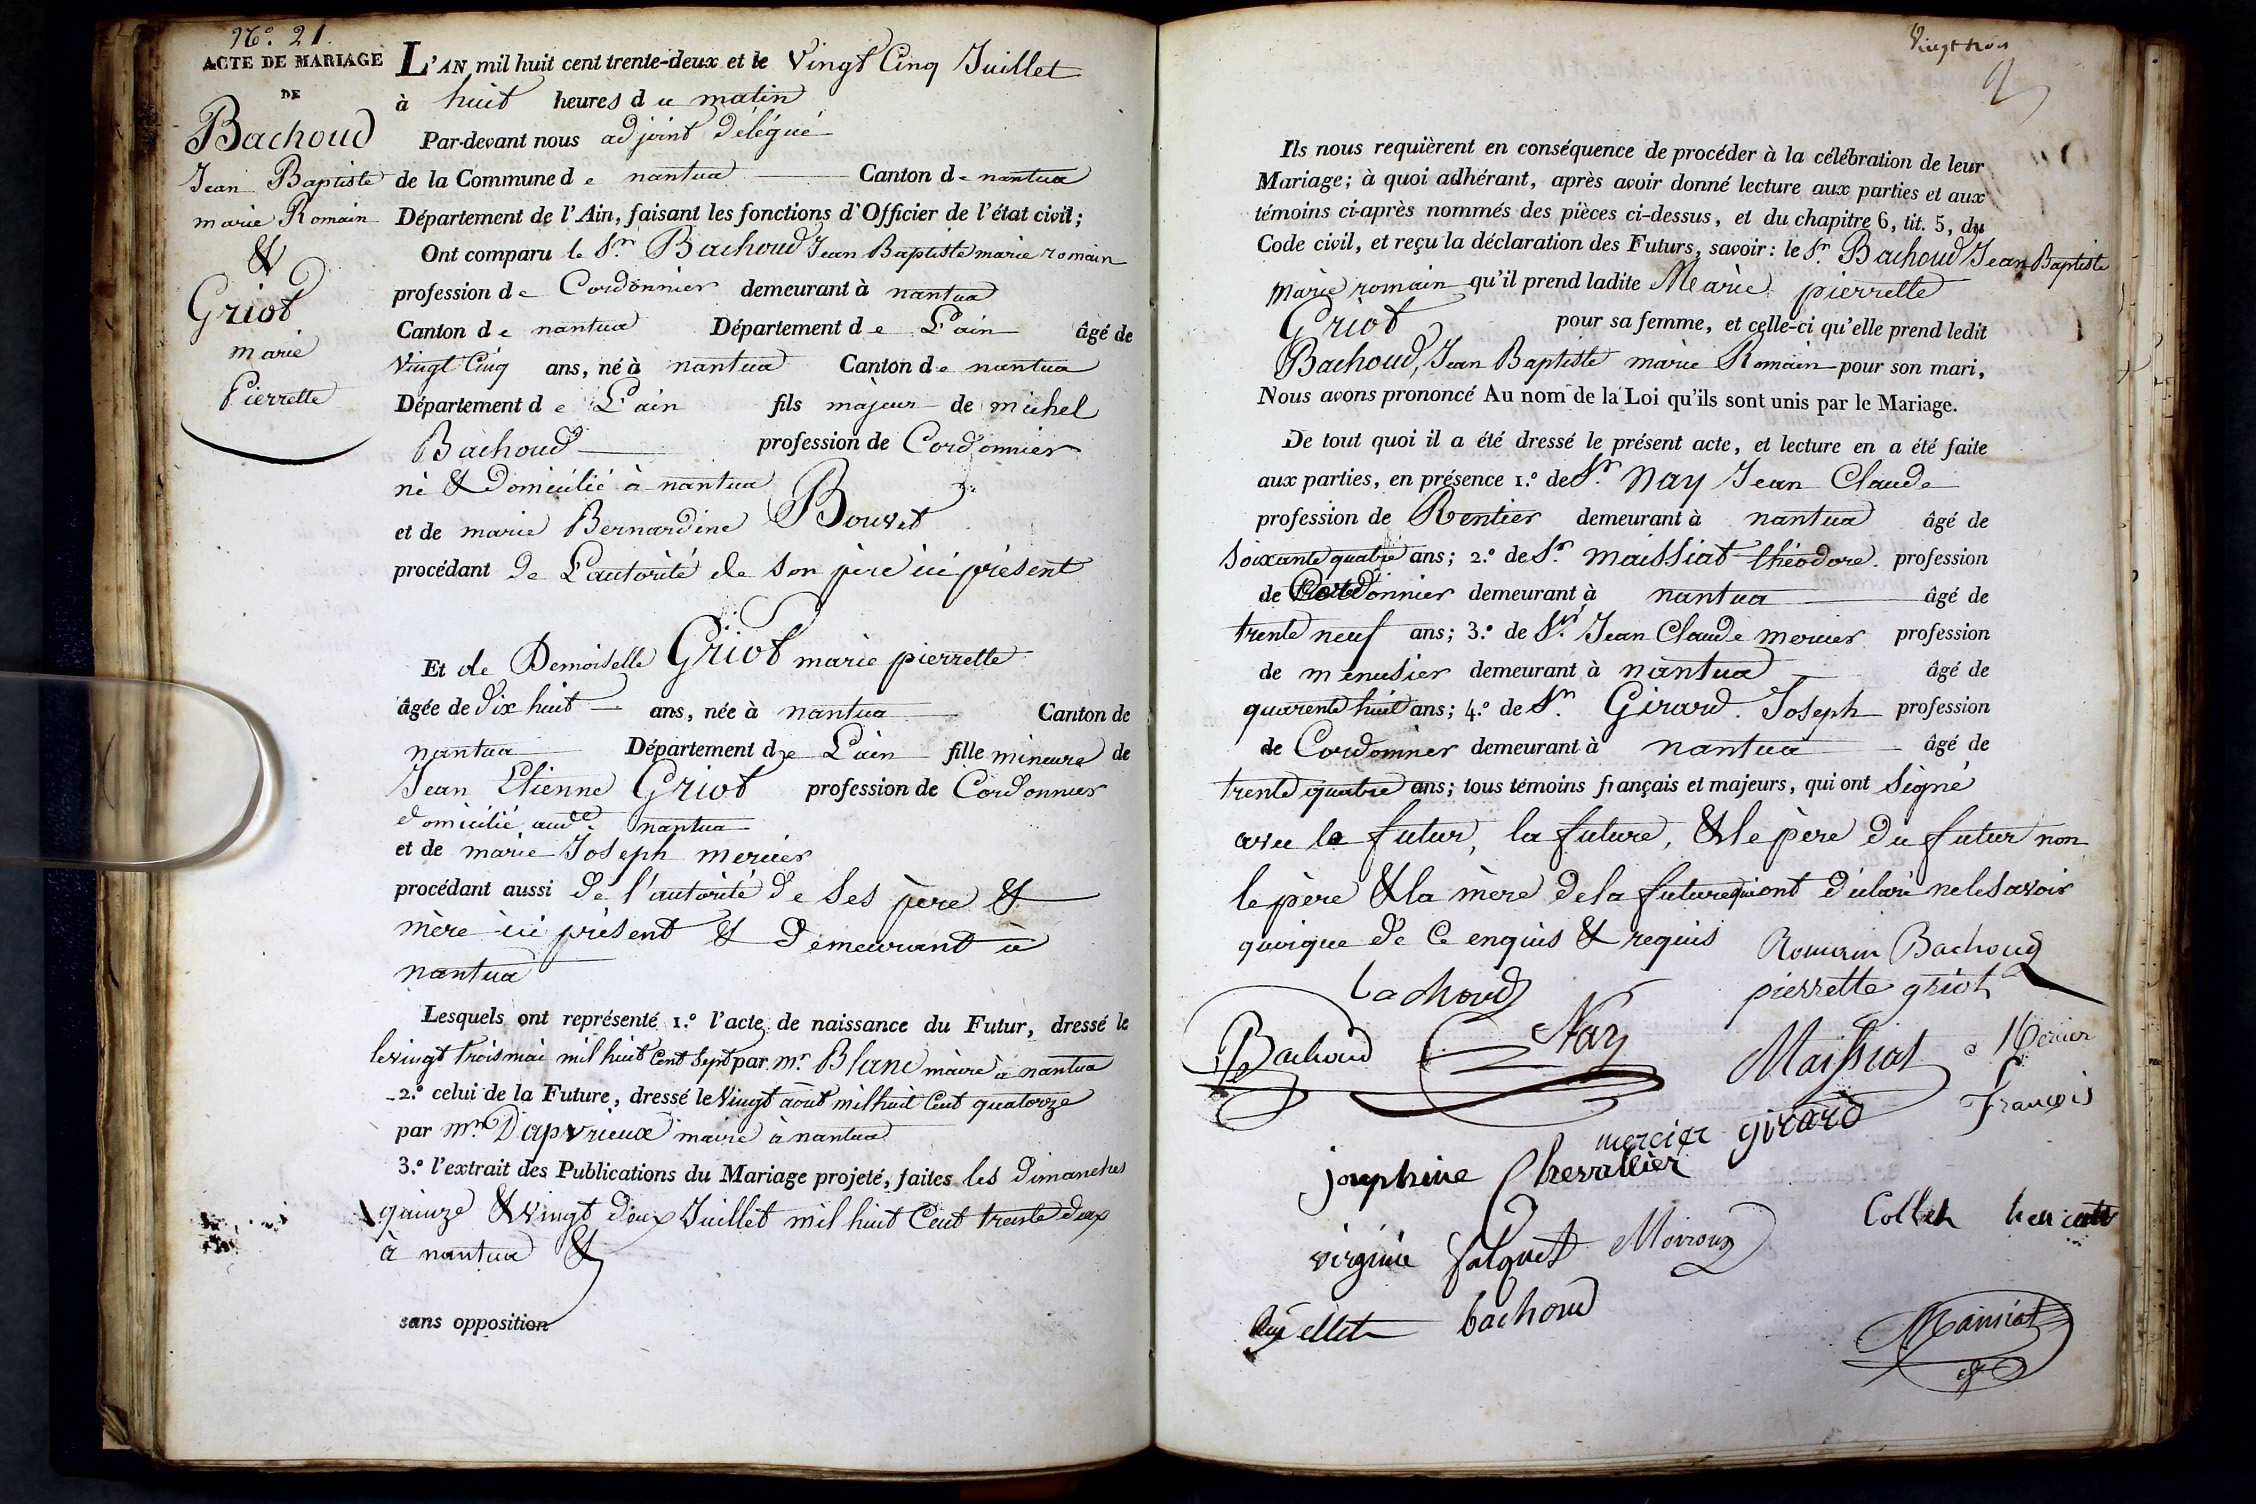 N.° 21.
ACTE DE MARIAGE
DE
Bachoud
Jean Baptiste
marie Romain
&
Griot
marie
Pierrette
L'AN mil huit cent trente-deux et le Vingt Cinq Juillet
à huit heures du matin
Par-devant nous adjoint délégué
de la Commune de nantua Canton de nantua
Département de l'Ain, faisant les fonctions d'Officier de l'état civil;
Ont comparu le Sr. Bachoud Jean Baptiste marie romain
profession de Cordonnier demeurant à nantua
Canton de nantua Département de L'ain âgé de
Vingt Cinq ans, né à nantua Canton de nantua
Département de L'ain fils majeur de michel
Bachoud profession de Cordonnier
né & domicilié à nantua
et de marie Bernardine Bouvet
procédant de L'autorité de son père ici présent
Et de Demoiselle Griot marie pierrette
âgée de dix huit ans, née à nantua Canton de
nantua Département de L'ain fille mineure de
Jean Etienne Griot profession de Cordonnier
domicilié aud. nantua
et de marie Joseph mercier
procédant aussi de l'autorité de ses père &
mère ici présent & demeurant à
nantua
Lesquels ont représenté 1.° l'acte de naissance du Futur, dressé le
le vingt trois mai mil huit Cent sept par mr. Blanc maire à nantua
2.° celui de la Future, dressé le Vingt août mil huit Cent quatorze
par mr. Dapvrieux maire à nantua
3.° l'extrait des Publications du Mariage projeté, faites les dimanches
quinze & vingt deux Juillet mil huit Cent trente deux
à nantua &
sans opposition
Vingt trois
Ils nous requièrent en conséquence de procéder à la célébration de leur
Mariage; à quoi adhérant, après avoir donné lecture aux parties et aux
témoins ci-après nommés des pièces ci-dessus, et du chapitre 6, tit. 5, du
Code civil, et reçu la déclaration des Futurs, savoir: le Sr. Bachoud Jean Baptiste
Marie romain qu'il prend ladite Marie pierrette
Griot pour sa femme, et celle-ci qu'elle prend ledit
Bachoud, Jean Baptiste marie Romain pour son mari,
Nous avons prononcé Au nom de la Loi qu'ils sont unis par le Mariage.
De tout quoi il a été dressé le présent acte, et lecture en a été faite
aux parties, en présence 1.° de Sr. Nay Jean Claude
profession de Rentier demeurant à nantua âgé de
soixante quatre ans; 2.° de Sr. maissiat théodore. profession
de Cordonnier demeurant à nantua âgé de
trente neuf ans; 3.° de Sr. Jean Claude mercier profession
de menusier demeurant à nantua âgé de
quarente huit ans; 4.° de Sr. Girard. Joseph profession
de Cordonnier demeurant à nantua âgé de
trente quatre ans; tous témoins français et majeurs, qui ont signé
avec le futur, la future, & le père du futur non
le père & la mère de la future qui ont déclaré ne le savoir
quoique de Ce enquis & requis Romain Bachoud
bachoud pierrette griot
Bachoud Nay Maissiat Mercier
françois
mercier girard
josephine Chevallier
virginie falquet Moiroux Collet
bachoud
Mansiat